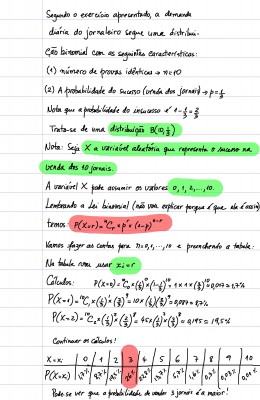 Segundo o exercício apresentado, a demanda
diária do jornaleiro segue uma distribui-
ção binomial com as seguintes características:
(1) número de provas idênticas → n=10
(2) A probabilidade do sucesso (venda dos jornais) → p=1/3
Nota que a probabilidade do insucesso é 1-1/3=2/3
Trata-se de uma distribuição B(10,1/3)
Nota: Seja X a variável aleatória que representa o sucesso na
venda dos 10 jornais.
A variável X pode assumir os valores 0, 1, 2, ..., 10.
Lembrando a lei binomial (não vou explicar porque é que ela é assim)
temos: P(X=r)=ⁿCᵣ × pʳ × (1-p)ⁿ⁻ʳ
Vamos fazer as contas para n=0,1,...,10 e preenchendo a tabela:
Na tabela vou usar xi=r
Cálculos: P(X=0)=¹⁰C₀×(1/3)⁰×(1-1/3)¹⁰=1×1×(2/3)¹⁰=0,017=1,7%
P(X=1)=¹⁰C₁×(1/3)¹×(2/3)⁹=10×(1/3)×(2/3)⁹=0,087=8,7%
P(X=2)=¹⁰C₂×(1/3)²×(2/3)⁸=45×(1/3)²×(2/3)⁸=0,195=19,5%
Continuar os cálculos!
X=xi 0 1 2 3 4 5 6 7 8 9 10
P(X=xi) 1,7% 8,7%
Pode-se ver que a probabilidade de vender 3 jornais é a maior!